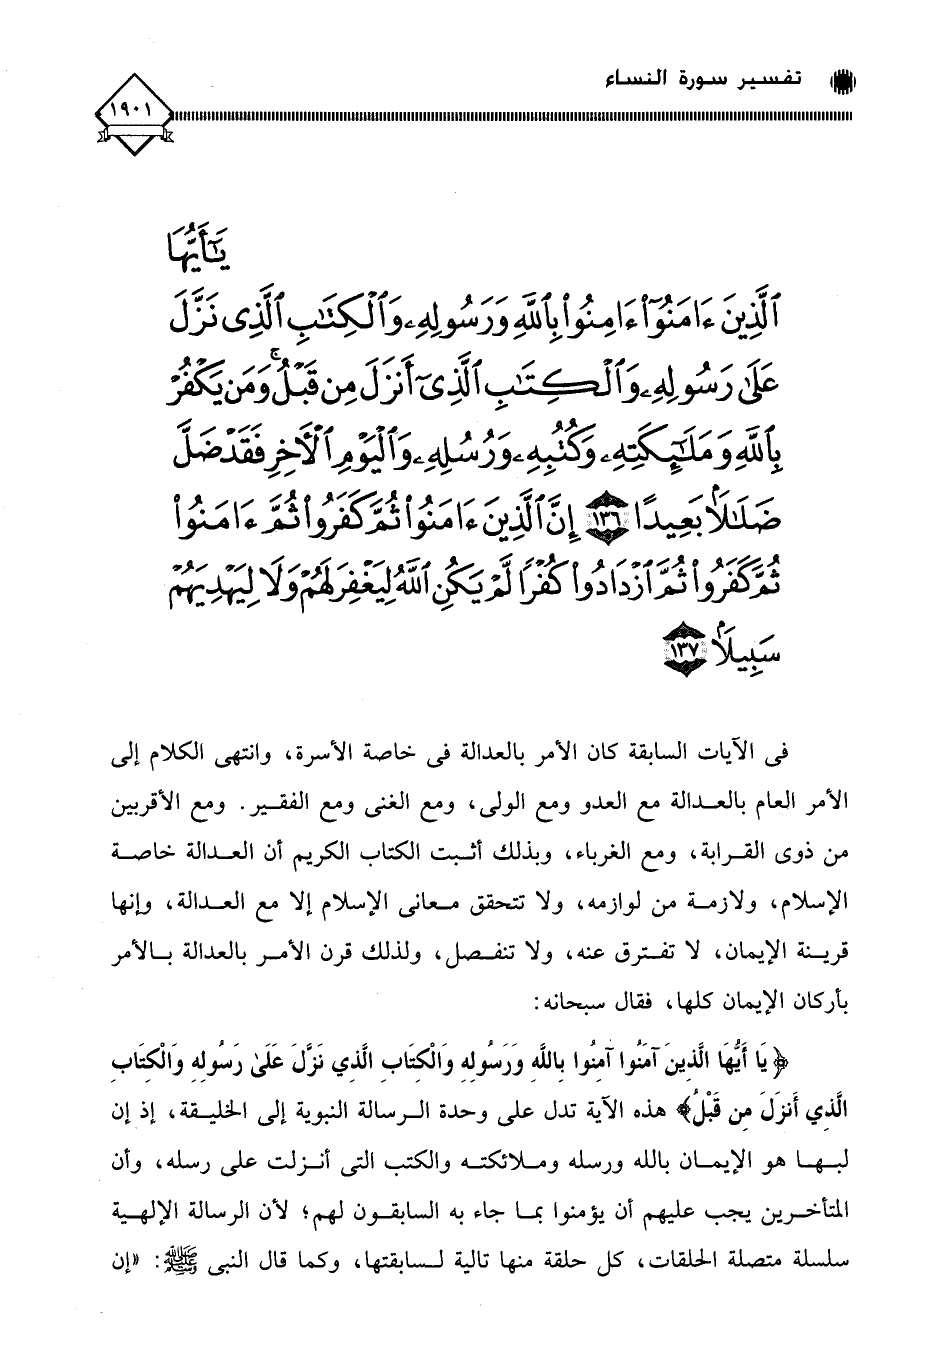 تفسير سورة النساء
١٩٠١
يَٰٓأَيُّهَا
ٱلَّذِينَ ءَامَنُوٓا۟ ءَامِنُوا۟ بِٱللَّهِ وَرَسُولِهِۦ وَٱلْكِتَٰبِ ٱلَّذِى نَزَّلَ
عَلَىٰ رَسُولِهِۦ وَٱلْكِتَٰبِ ٱلَّذِىٓ أَنزَلَ مِن قَبْلُ ۚ وَمَن يَكْفُرْ
بِٱللَّهِ وَمَلَٰٓئِكَتِهِۦ وَكُتُبِهِۦ وَرُسُلِهِۦ وَٱلْيَوْمِ ٱلْءَاخِرِ فَقَدْ ضَلَّ
ضَلَٰلًۢا بَعِيدًا ١٣٦ إِنَّ ٱلَّذِينَ ءَامَنُوا۟ ثُمَّ كَفَرُوا۟ ثُمَّ ءَامَنُوا۟
ثُمَّ كَفَرُوا۟ ثُمَّ ٱزْدَادُوا۟ كُفْرًا لَّمْ يَكُنِ ٱللَّهُ لِيَغْفِرَ لَهُمْ وَلَا لِيَهْدِيَهُمْ
سَبِيلًۢا ١٣٧
فى الآيات السابقة كان الأمر بالعدالة فى خاصة الأسرة، وانتهى الكلام إلى
الأمر العام بالعدالة مع العدو ومع الولى، ومع الغنى ومع الفقير. ومع الأقربين
من ذوى القرابة، ومع الغرباء، وبذلك أثبت الكتاب الكريم أن العدالة خاصة
الإسلام، ولازمة من لوازمه، ولا تتحقق معانى الإسلام إلا مع العدالة، وإنها
قرينة الإيمان، لا تفترق عنه، ولا تنفصل، ولذلك قرن الأمر بالعدالة بالأمر
بأركان الإيمان كلها، فقال سبحانه:
﴿يَا أَيُّهَا الَّذِينَ آمَنُوا آمِنُوا بِاللَّهِ وَرَسُولِهِ وَالْكِتَابِ الَّذِي نَزَّلَ عَلَىٰ رَسُولِهِ وَالْكِتَابِ
الَّذِي أَنزَلَ مِن قَبْلُ﴾ هذه الآية تدل على وحدة الرسالة النبوية إلى الخليقة، إذ إن
لبها هو الإيمان بالله ورسله وملائكته والكتب التى أنزلت على رسله، وأن
المتأخرين يجب عليهم أن يؤمنوا بما جاء به السابقون لهم؛ لأن الرسالة الإلهية
سلسلة متصلة الحلقات، كل حلقة منها تالية لسابقتها، وكما قال النبى ﷺ: «إن